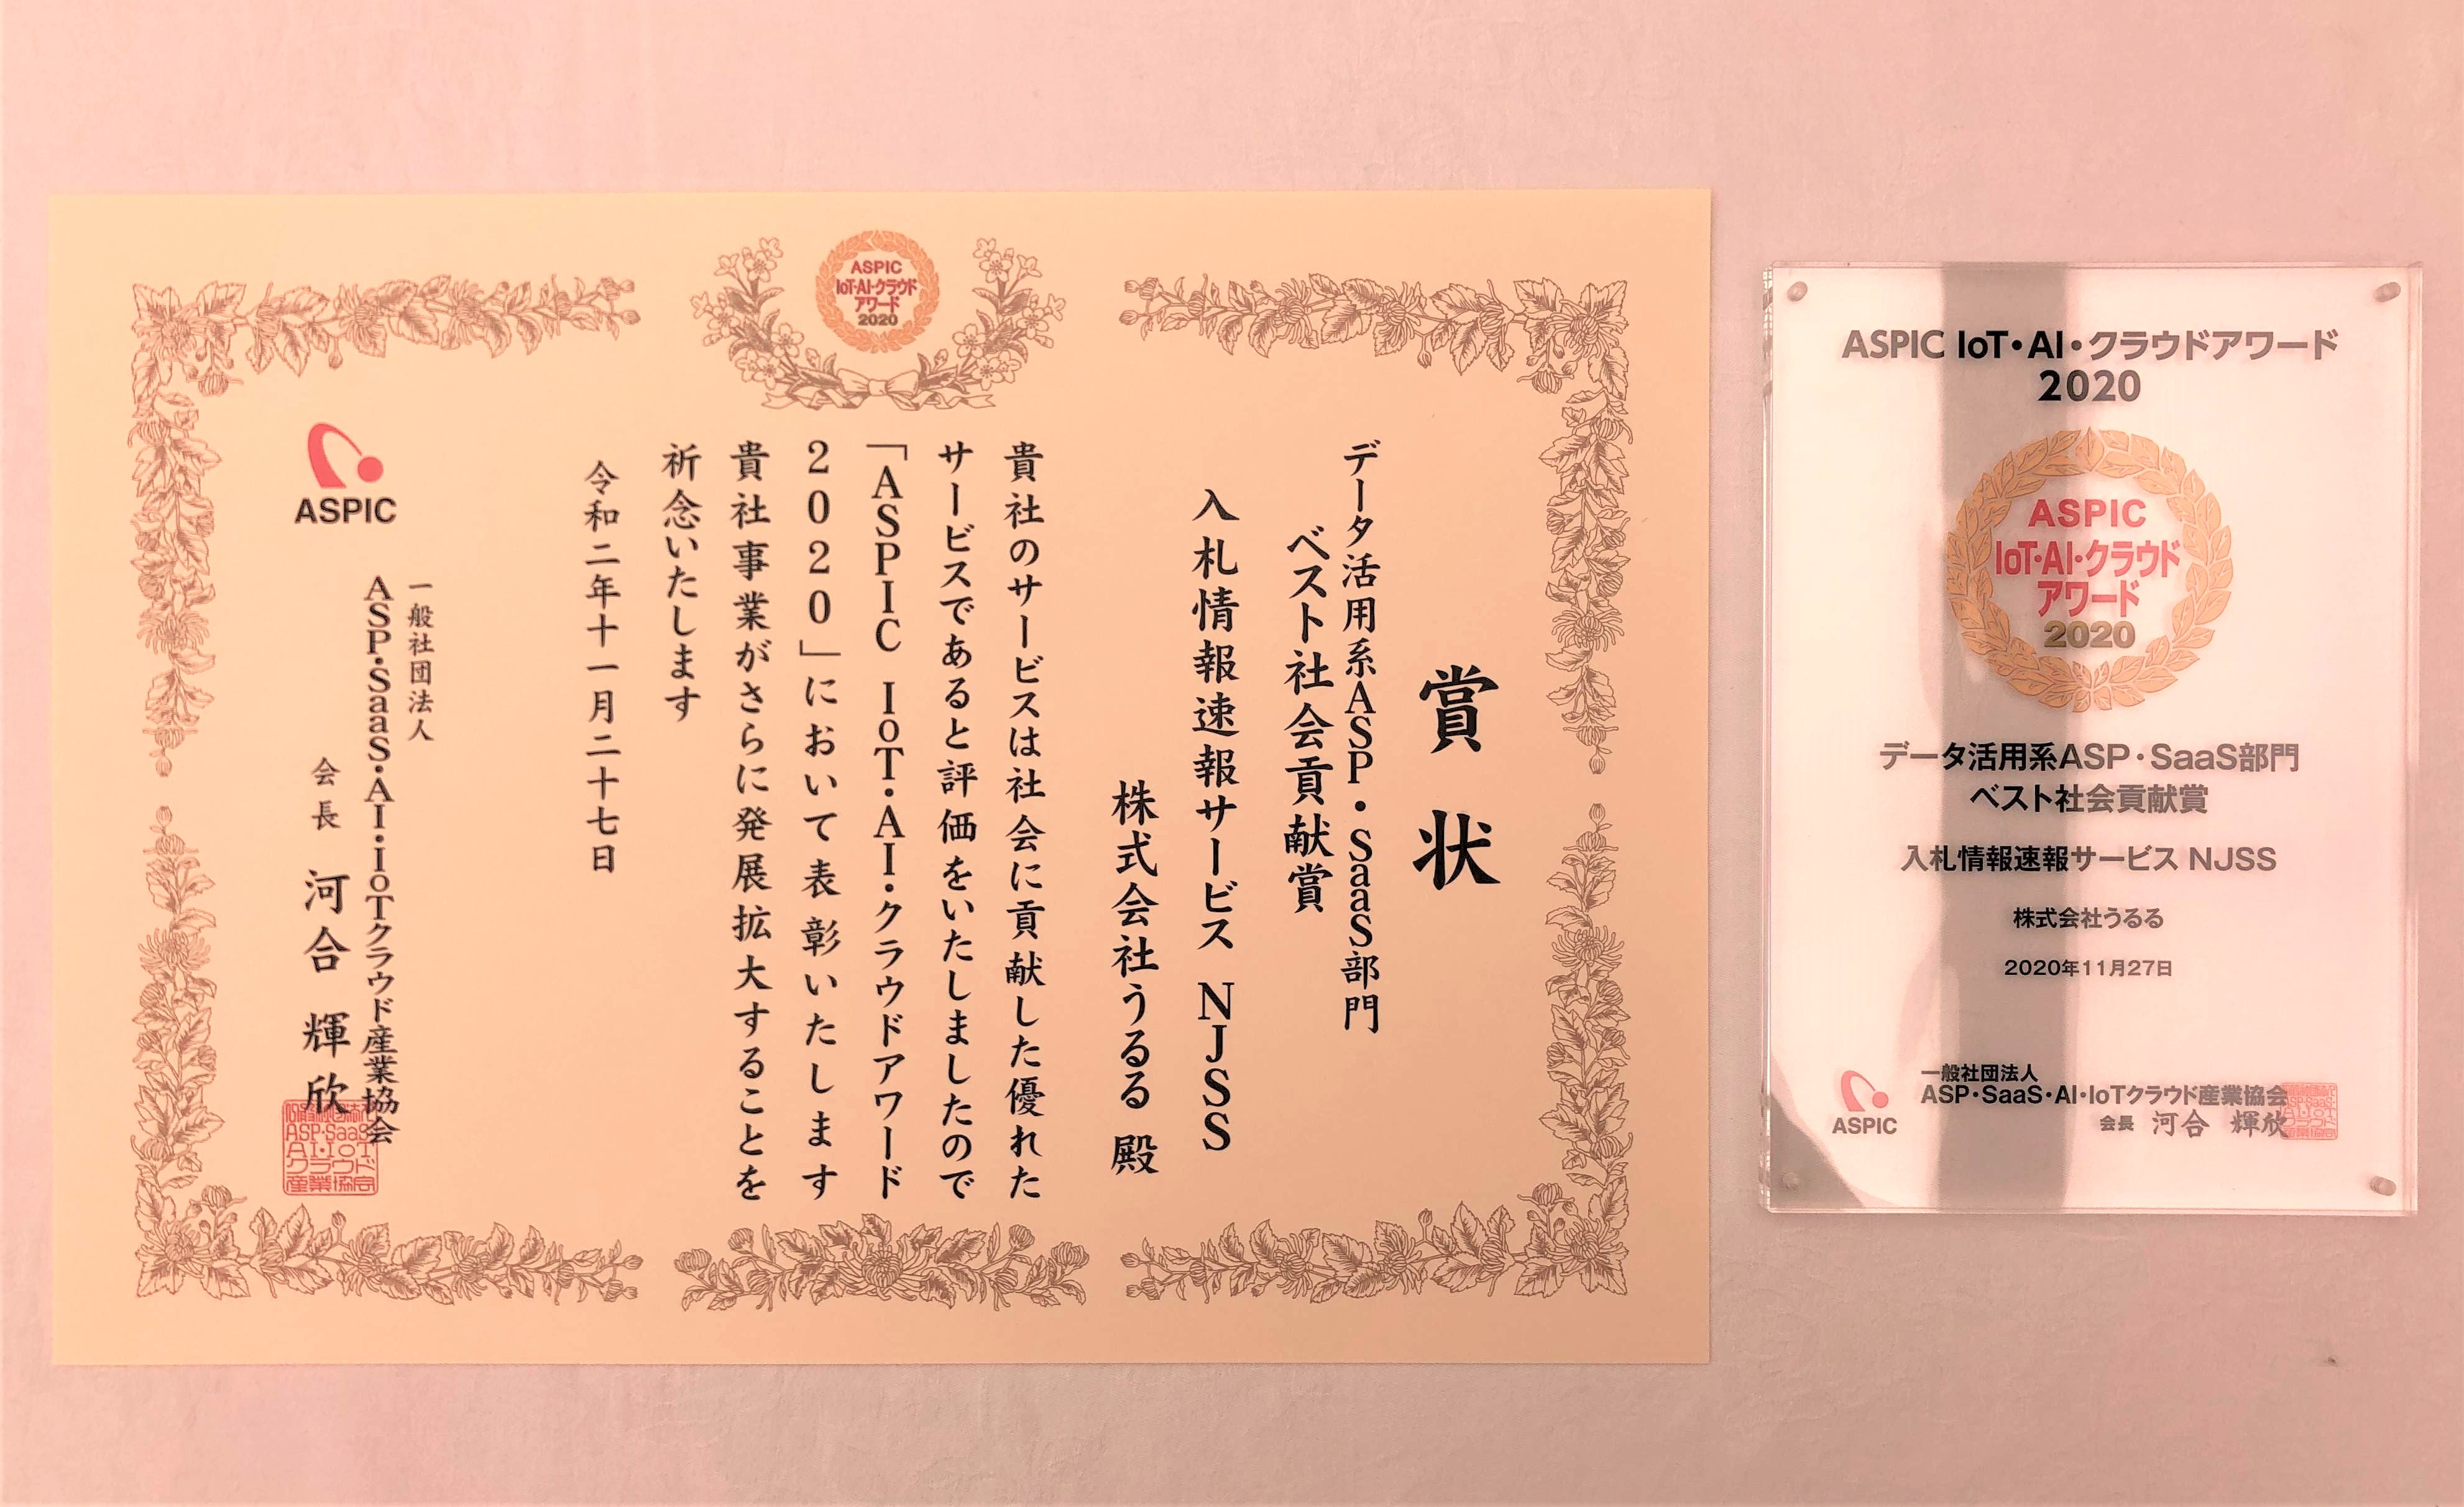 ASPIC
IoT・AI・クラウド
アワード
2020
賞状
データ活用系ASP・SaaS部門
ベスト社会貢献賞
入札情報速報サービス NJSS
株式会社うるる 殿
貴社のサービスは社会に貢献した優れた
サービスであると評価をいたしましたので
「ASPIC IoT・AI・クラウドアワード
2020」において表彰いたします
貴社事業がさらに発展拡大することを
祈念いたします
令和二年十一月二十七日
一般社団法人
ASP・SaaS・AI・IoTクラウド産業協会
会長 河合輝欣
ASPIC
ASP・SaaS
AI・IoT
クラウド
産業協会
ASPIC IoT・AI・クラウドアワード
2020
ASPIC
IoT・AI・クラウド
アワード
2020
データ活用系ASP・SaaS部門
ベスト社会貢献賞
入札情報速報サービス NJSS
株式会社うるる
2020年11月27日
ASPIC
一般社団法人
ASP・SaaS・AI・IoTクラウド産業協会
会長 河合 輝欣